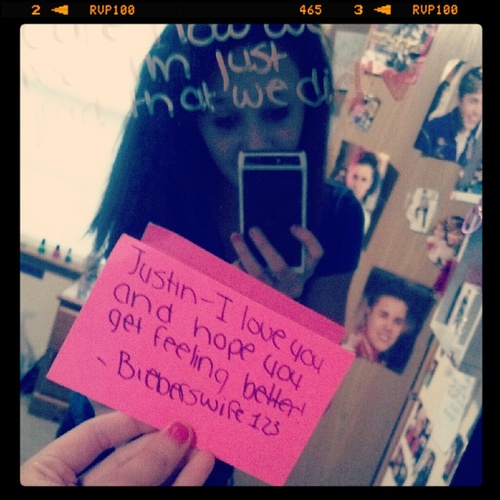 2 RVP100 465 3 RVP100
I'm just
that we di
Justin-I love you
and hope you
get feeling better!
- Bieberswife123